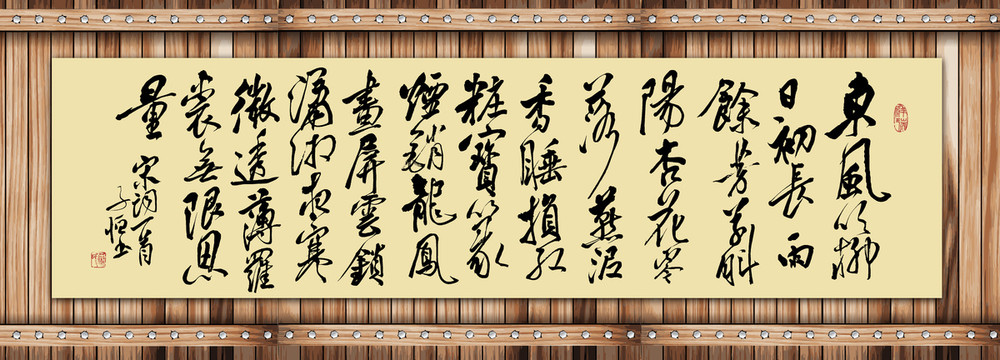 東風吹柳
日初長雨
餘芳草斜
陽杏花零
落燕泥
香睡損紅
粧寶篆
煙銷龍鳳
畫屏雲鎖
瀟湘夜寒
微透薄羅
裳無限思
量
宋詞一首
子恒書